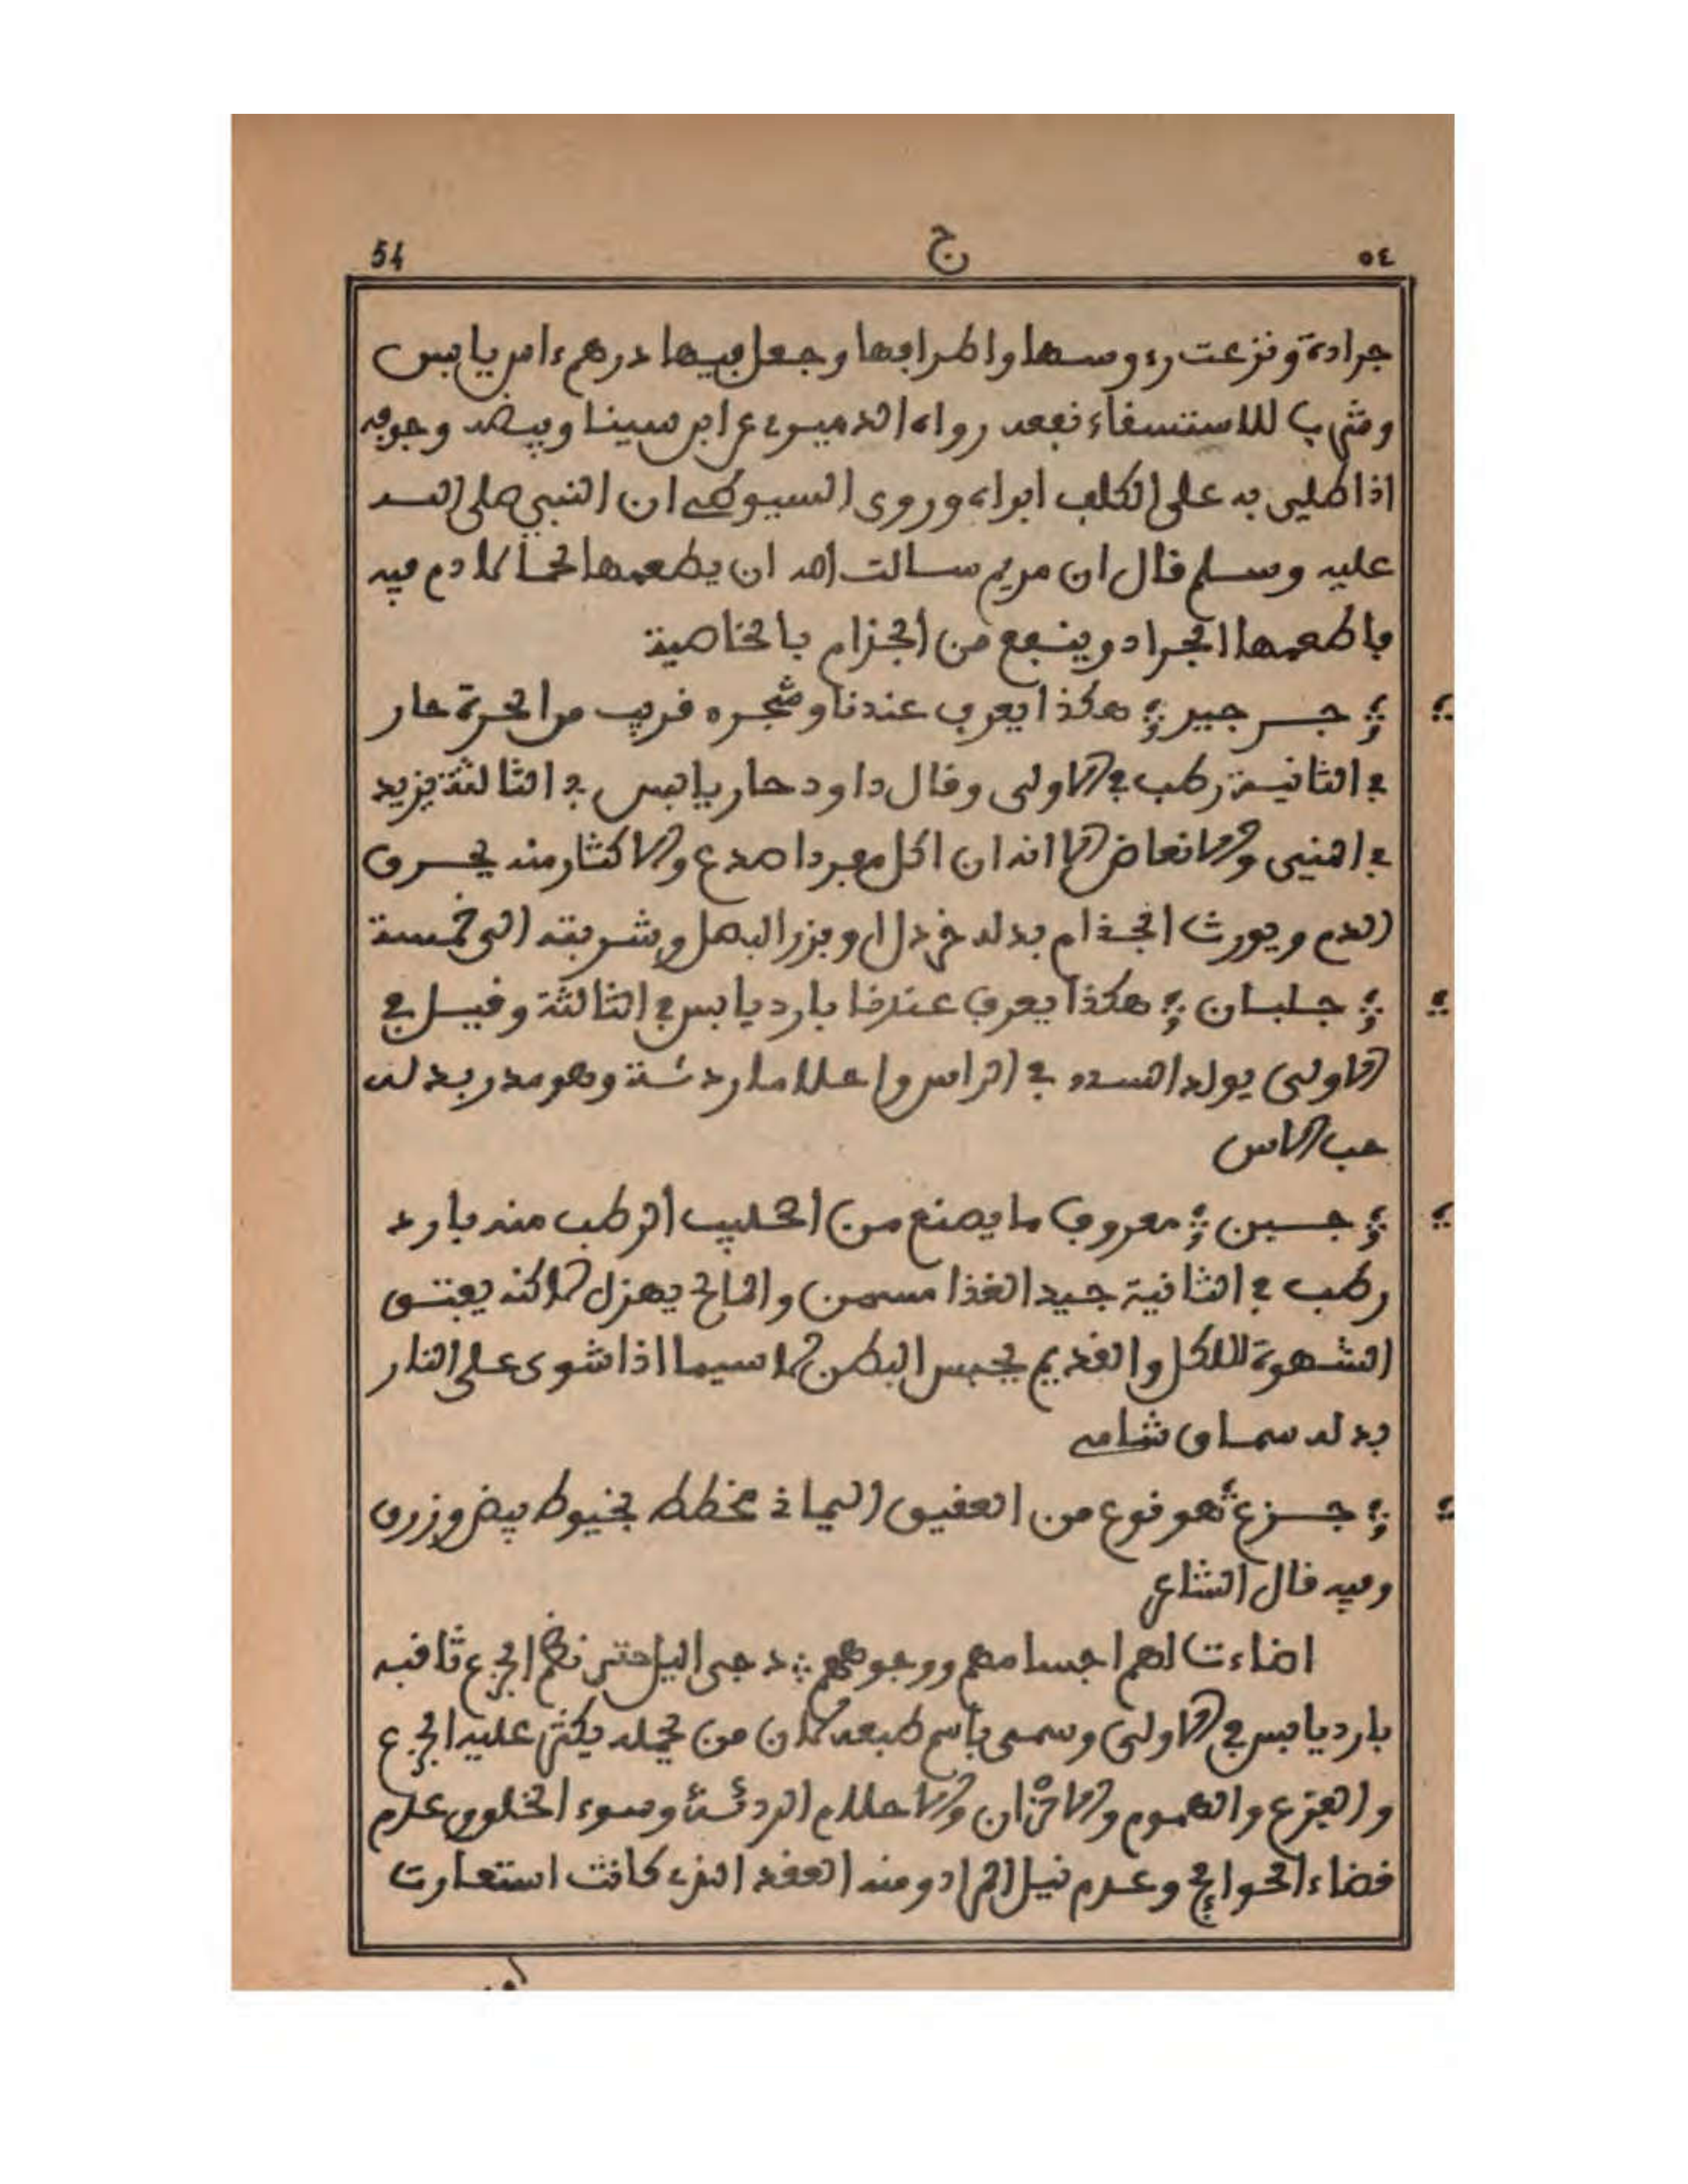 54 ج ٥٤
جرادة ونزعت رءوسها واطرافها وجعل فيها درهم ءاس يابس
وشرب للاستسفاء نفعه رواه الدميرى عن ابن سينا وبيضه وجوفه
اذا طلي به على الكلف ابراه وروى السيوطي ان النبي صلى الله
عليه وسلم قال ان مريم سالت الله ان يطعمها لحما لا دم فيه
فاطعمها الجراد وينفع من الجزام بالخاصية
جرجير هكذا يعرف عندنا وشجره قريب من الحرة حار
في الثانية رطب في الاولى وقال داود حار يابس في الثالثة يزيد
في المني والانعاض الا انه ان اكل مفردا صدع والاكثار منه يحرق
الدم ويورث الجذام بدله خردل او بزر البصل وشربته الى خمسة
جلبان هكذا يعرف عندنا بارد يابس في الثالثة وقيل في
الاولى يولد السدد في الراس واحلاما ردئة وهو مدر بدله
حب الاس
جبن معروف ما يصنع من الحليب الرطب منه بارد
رطب في الثانية جيد الغذا مسمن والمالح يهزل لاكنه يفتق
الشهوة للاكل والقديم يحبس البطن لا سيما اذا شوى على النار
بدله سماق شامي
جزع هو نوع من العقيق اليماني مخطط بخيوط بيض وزرق
وفيه قال الشاعر
اضاءت لهم اجسامهم ووجوههم دجى اليل حتى نظم الجزع ثاقبه
بارد يابس في الاولى وسمي باسم طبعه لان من يحمله يكثر عليه الجزع
والفزع والهموم والاحزان والاحلام الردئة وسوء الخلق وعدم
قضاء الحوايج وعدم نيل المراد ومنه العقد الذى كانت استعارت